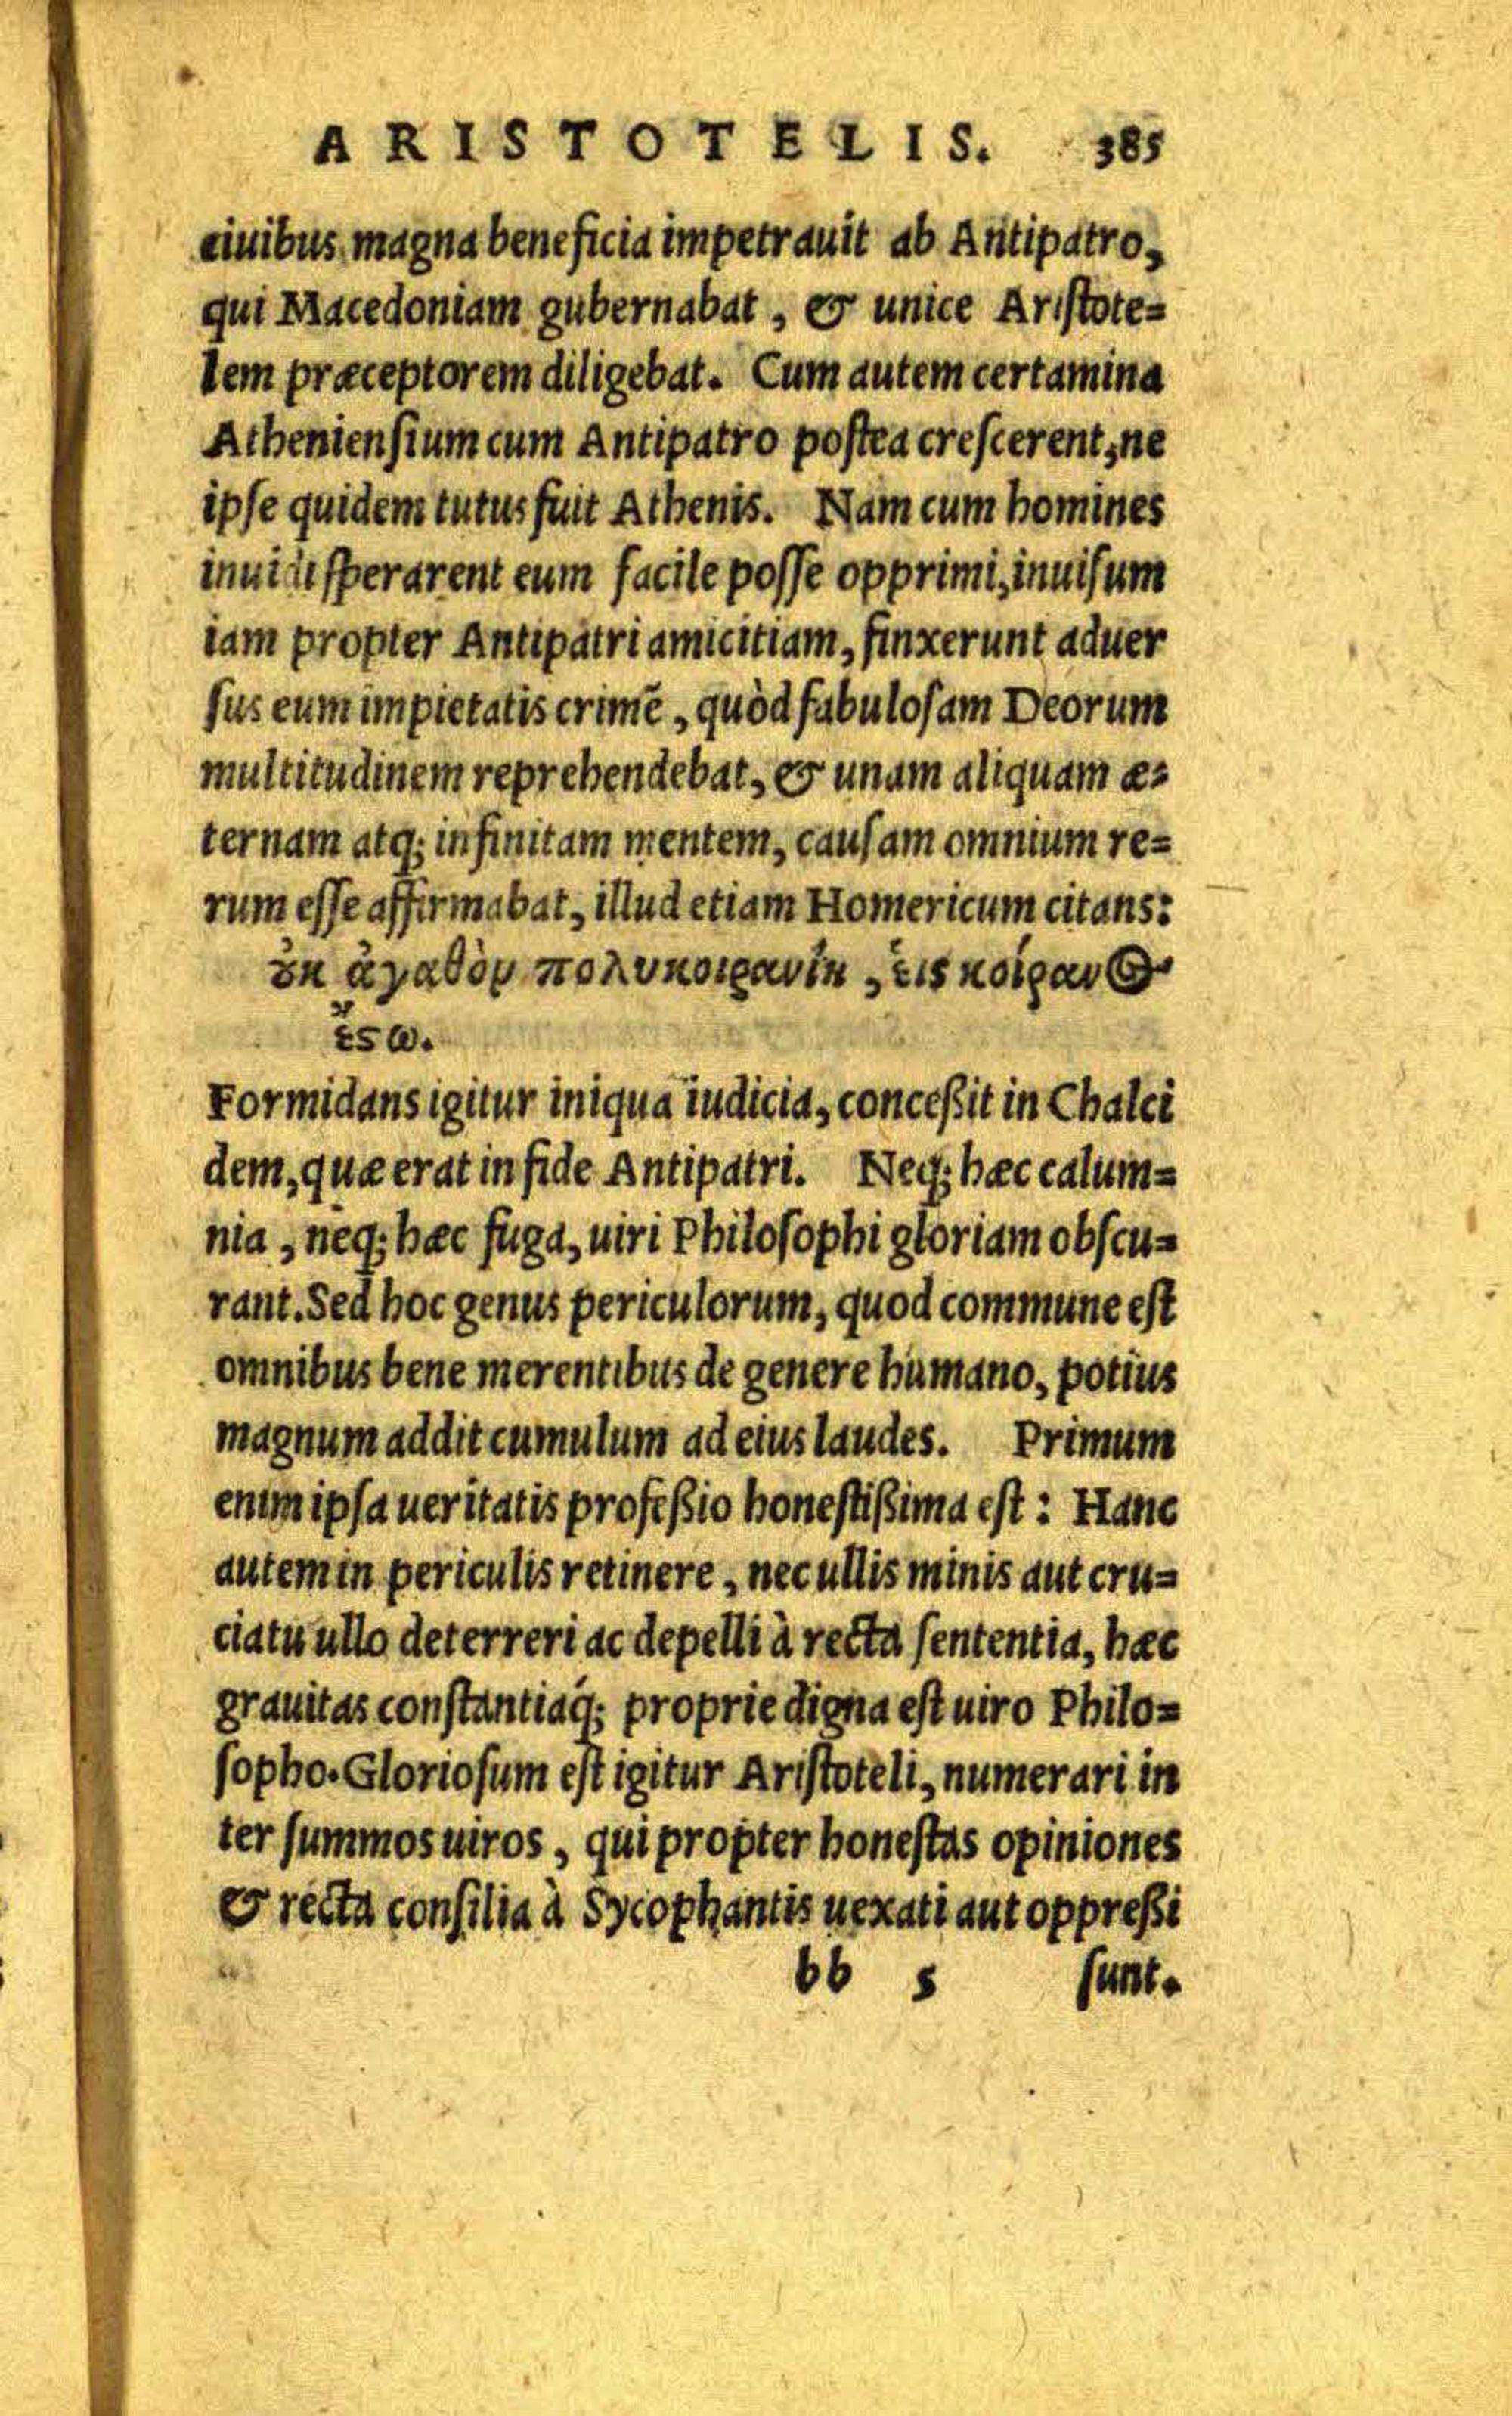 ARISTOTELIS. 385
ciuibus magna beneficia impetrauit ab Antipatro,
qui Macedoniam gubernabat, & unice Aristote=
lem præceptorem diligebat. Cum autem certamina
Atheniensium cum Antipatro postea crescerent, ne
ipse quidem tutus fuit Athenis. Nam cum homines
inuidi sperarent eum facile posse opprimi, inuisum
iam propter Antipatri amicitiam, finxerunt aduer
sus eum impietatis crimẽ, quòd fabulosam Deorum
multitudinem reprehendebat, & unam aliquam æ=
ternam atq; infinitam mentem, causam omnium re=
rum esse affirmabat, illud etiam Homericum citans:
ὀυκ ἀγαθὸν πολυκοιρανίη, εἷς κοίρανος
ἔςω.
Formidans igitur iniqua iudicia, conceßit in Chalci
dem, quæ erat in fide Antipatri. Neq; hæc calum=
nia, neq; hæc fuga, uiri Philosophi gloriam obscu=
rant. Sed hoc genus periculorum, quod commune est
omnibus bene merentibus de genere humano, potius
magnum addit cumulum ad eius laudes. Primum
enim ipsa ueritatis profeßio honestißima est: Hanc
autem in periculis retinere, nec ullis minis aut cru=
ciatu ullo deterreri ac depelli à recta sententia, hæc
grauitas constantiaq́; proprie digna est uiro Philo=
sopho. Gloriosum est igitur Aristoteli, numerari in
ter summos uiros, qui propter honestas opiniones
& recta consilia à Sycophantis uexati aut oppreßi
bb 5 sunt.